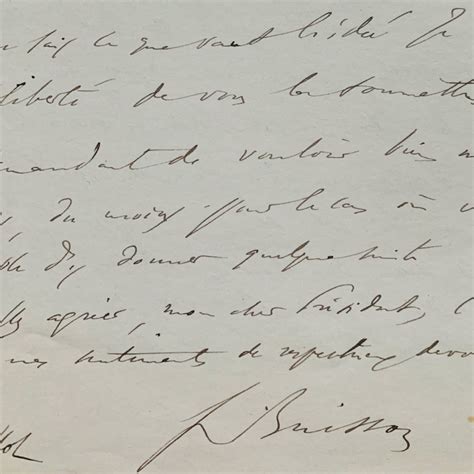 sais ce que vaut l'idée Je
liberté de vous la soumettre
mandant de vouloir bien
du moins pour le cas où v
d'y donner quelque suite
agréer, mon cher Président, l
mes sentiments de respectueux dévou
F. Buisson